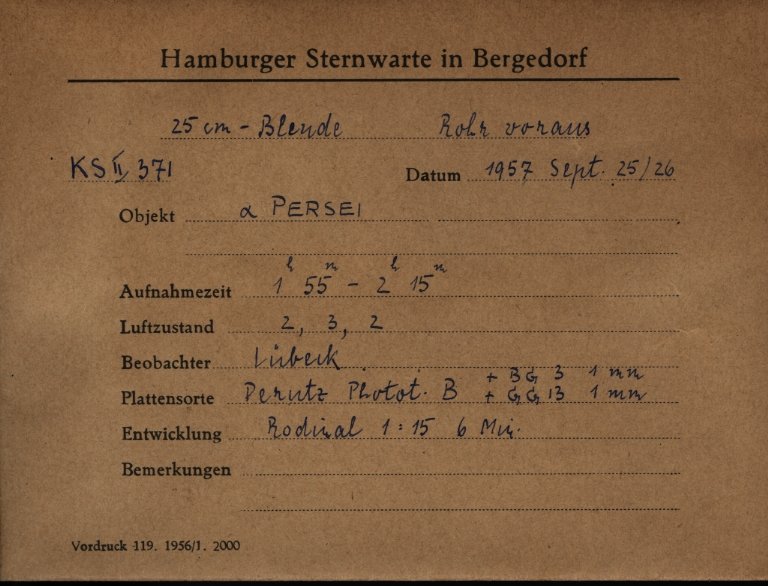 Hamburger Sternwarte in Bergedorf
25 cm - Blende Rohr voraus
KS II 371 Datum 1957 Sept. 25/26
Objekt α PERSEI
Aufnahmezeit 1h 55m - 2h 15m
Luftzustand 2, 3, 2
Beobachter Lübeck
+ BG 3 1 mm
Plattensorte Perutz Photot. B + GG 13 1 mm
Entwicklung Rodinal 1:15 6 Min.
Bemerkungen
Vordruck 119. 1956/1. 2000